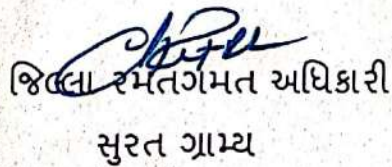 જિલ્લા રમતગમત અધિકારી
સુરત ગ્રામ્ય